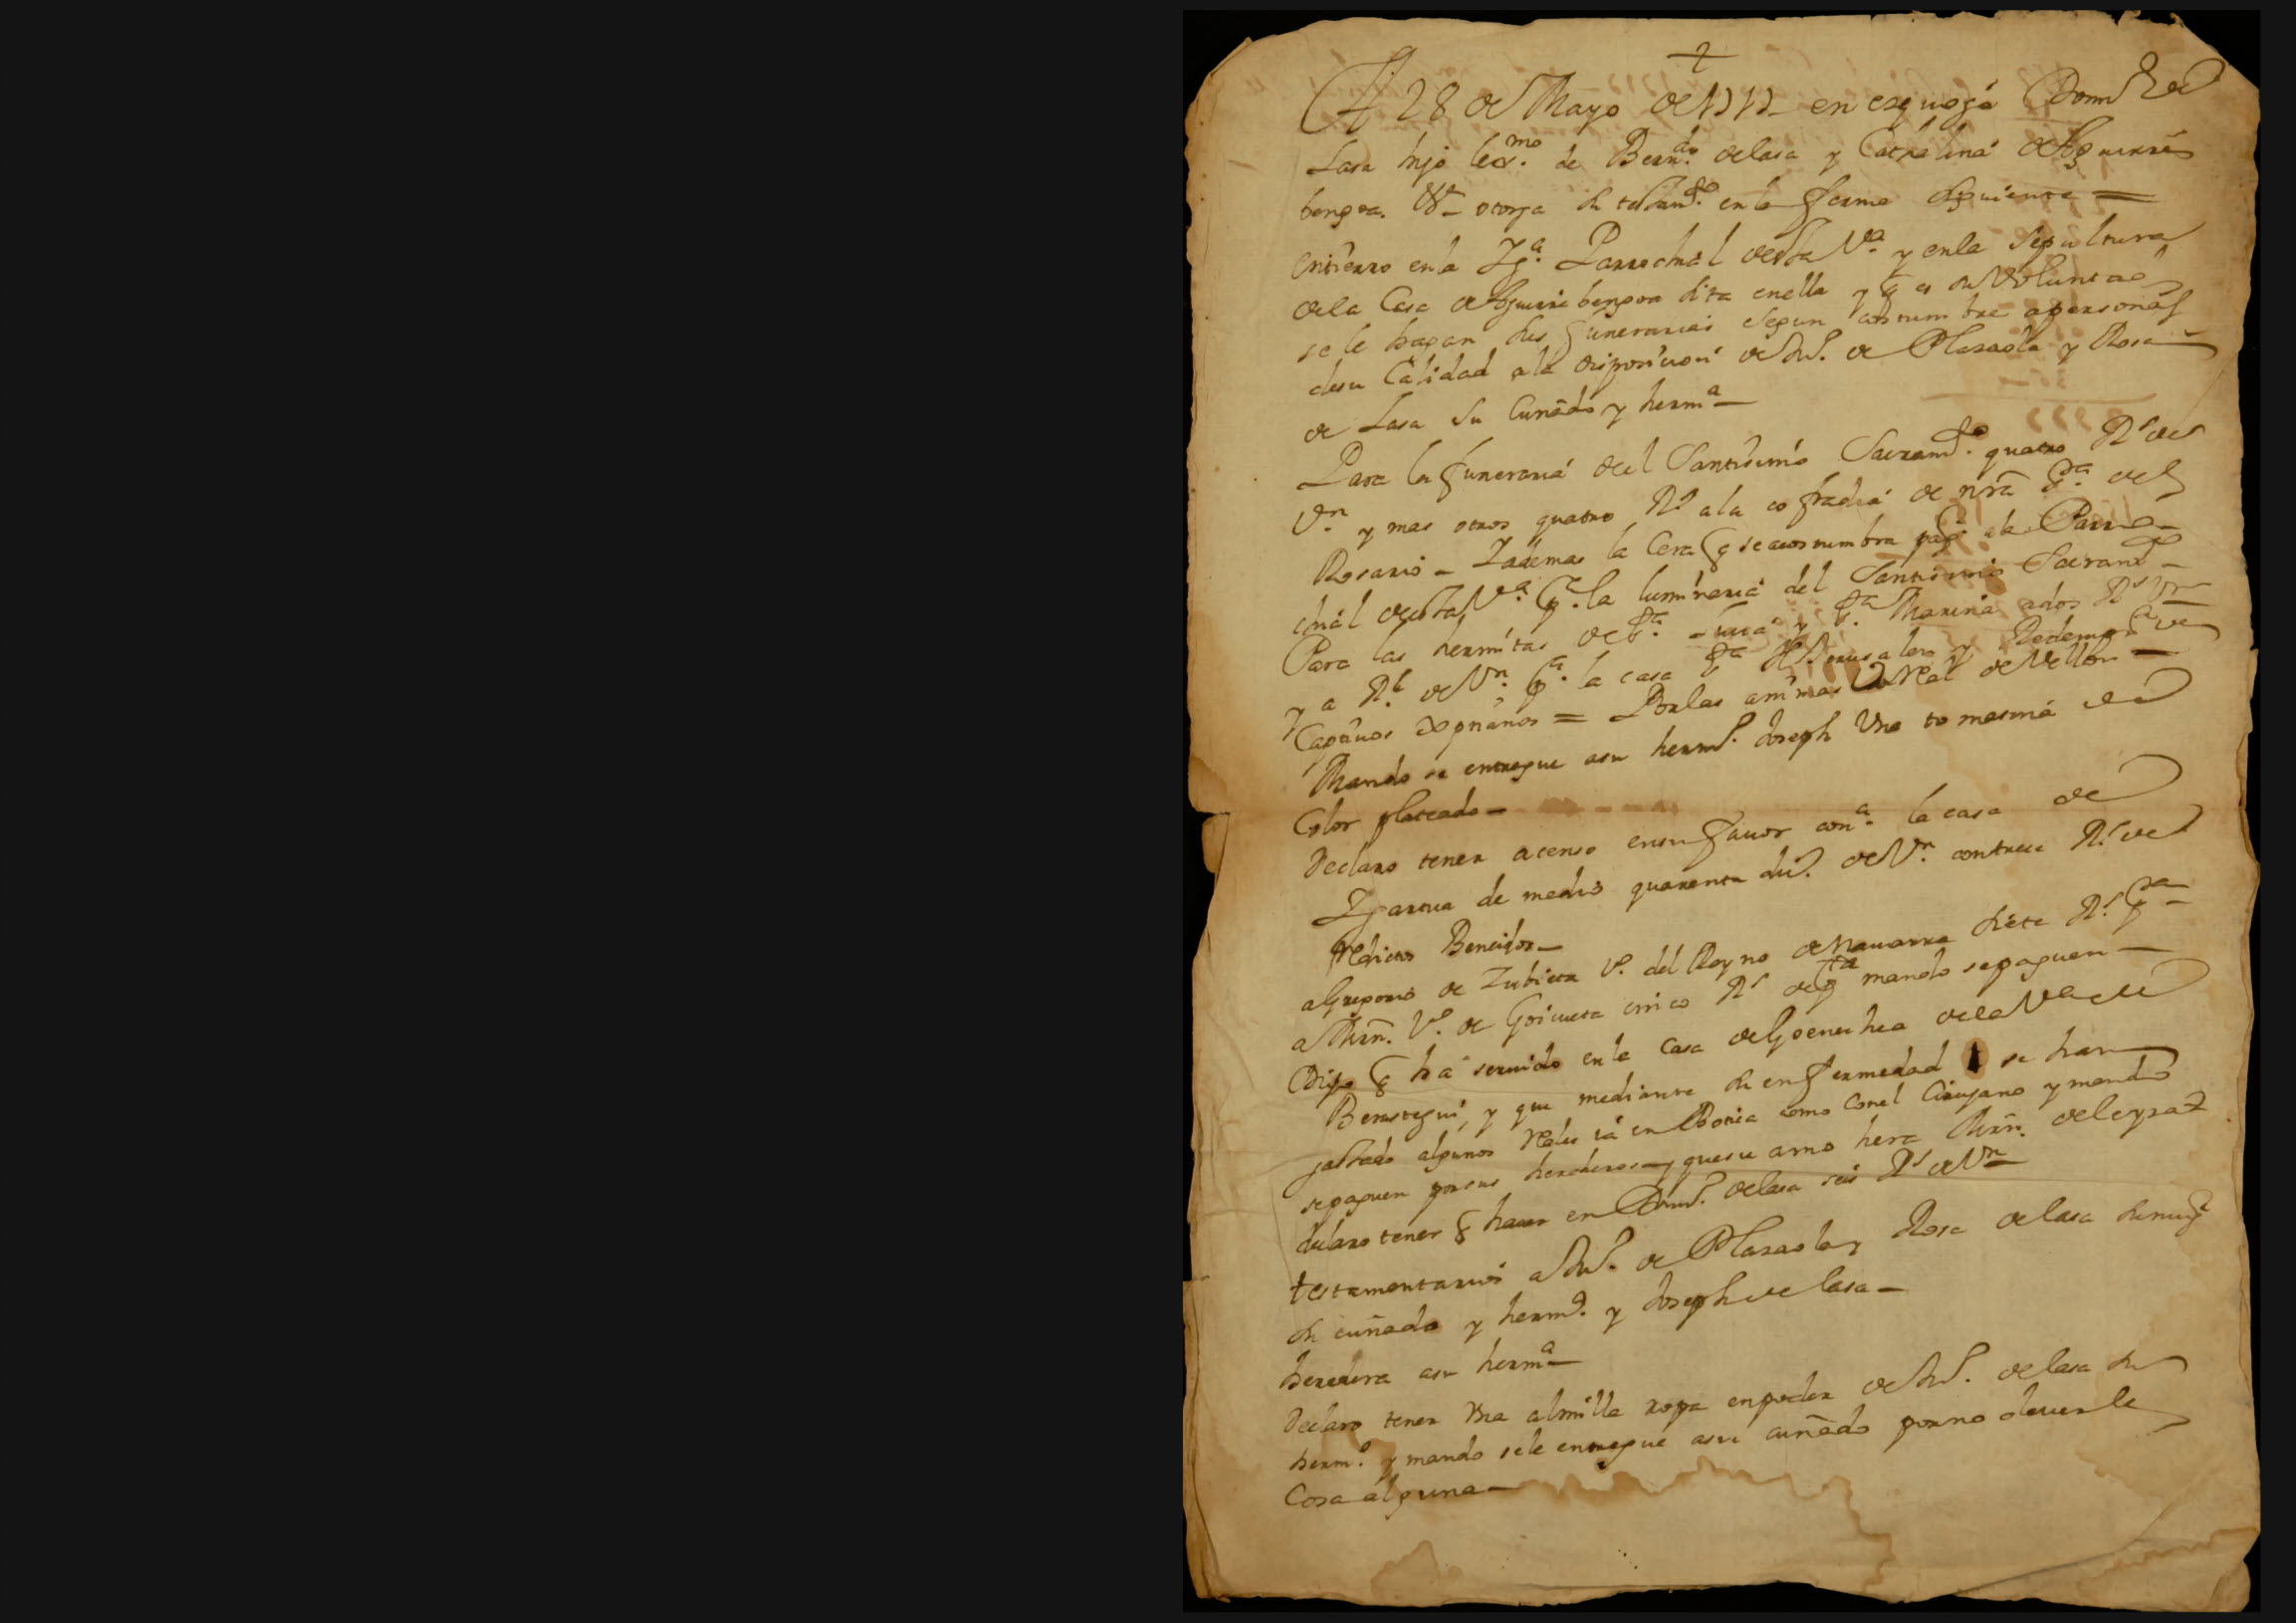 A 28 de Mayo de 1717 en esquoga Dom.º de
Lasa hijo leg.mo de Bern.do de lasa y Cathalina de Aguirre
bengoa. otorga su testam.to en la forma siguiente =
Entierro en la Yg.ª Parrochial desta V.ª y en la Sepultura
de la Casa de Aguirrebengoa sita en ella y q es su Voluntad
se le hagan sus funerarias segun costumbre a personas
de su Calidad a la disposicion de de Plazaola y Rosa
de Lasa Su Cuñado y herm.a
Para la funeraria del Santisimo Sacram.to quatro R.s de
V.n y mas otros quatro R.s a la cofradia de nrã S.ra del
Rosario - Y ademas la Cera q se acostumbra pag.r a la Parro-
chial desta V.ª p.ª la luminaria del Santisimo Sacram.to
Para las hermitas de S.ta y S.ta Marina a dos R.s V.n
y a R.l de V.n p.ª la casa S.ta de Jerusalen y Redemp.on de
Captiuos Xpnanos = Por las animas Vn Real de Vellon
Mando se entregue a su herm.º Joseph Vna
Color plateado -
Declaro tener a censo en su fauor con.ª la casa de
Ygartua de medio quarenta du.s de V.n con trece R.s de
Redictos Bencidos -
a Gregorio de Zubieta V.º del Reyno de Nauarra siete R.s
a Mrñ. V.º de Goicueta cinco R.s mando se paguen
Digo q ha seruido en la Casa de Goenechea de la V.ª de
Berastegui, y que mediante su enfermedad se han
gastado algunos Reales en Botica como con el Cirujano y mando
se paguen por sus herederos y que su amo hera Mrñ. de leyzaz
declaro tener q hauer en Dom.º de lasa seis R.s de V.n
testamentarios a de Plazaola y Rosa de lasa su mug.r
su cuñado y herm.ª y Joseph de lasa -
heredera a su herm.ª
Declaro tener Vna almilla ropa en poder de de lasa su
herm.º y mando se le entregue a su cuñado por no deuerle
Cosa alguna -